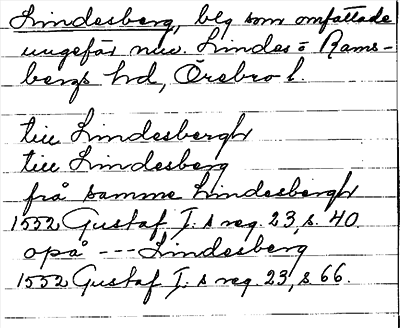 Lindesberg, blg som omfattade
ungefär nuv. Lindes = Rams-
bergs hd, Örebro l.
till Lindesbergh
till Lindesberg
frå samme Lindesbergh
1552 Gustaf I:s reg. 23, s. 40.
opå --- Lindesberg
1552 Gustaf I:s reg. 23, s 66.